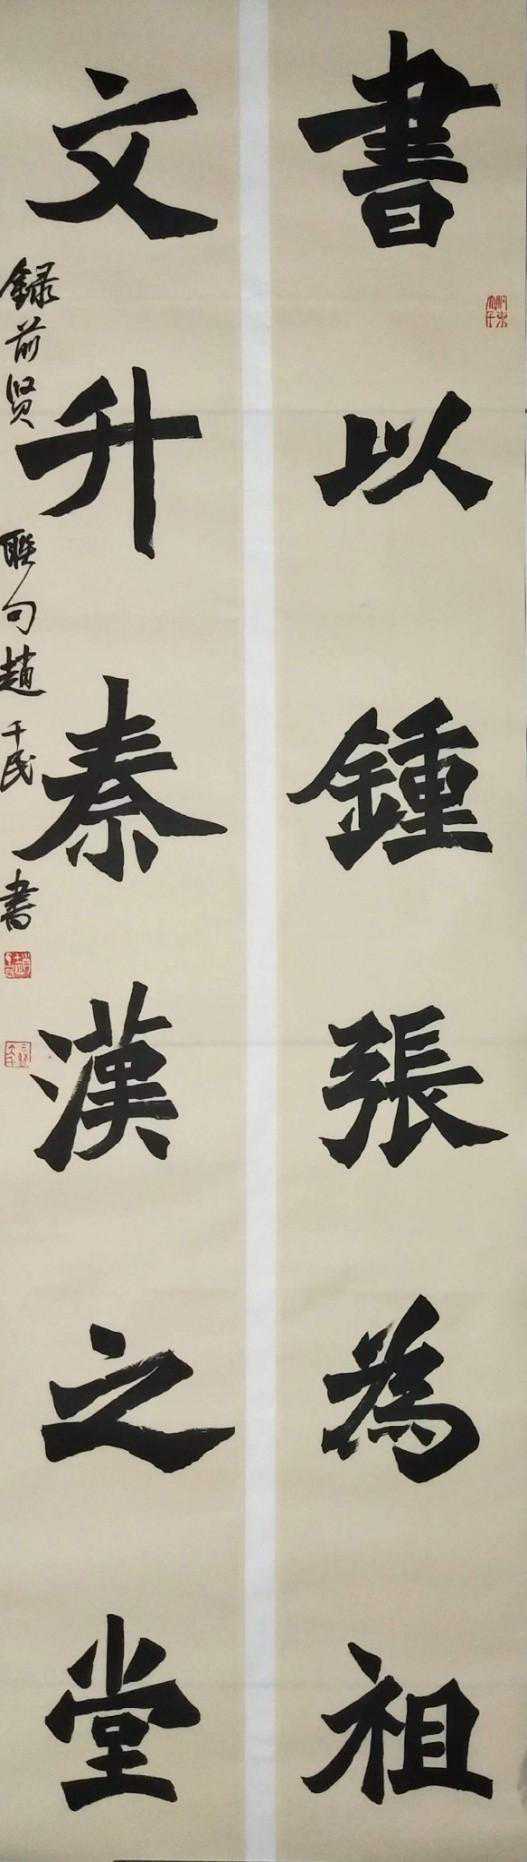 書以鍾張為祖
文升秦漢之堂
録前贤聯句趙千民書